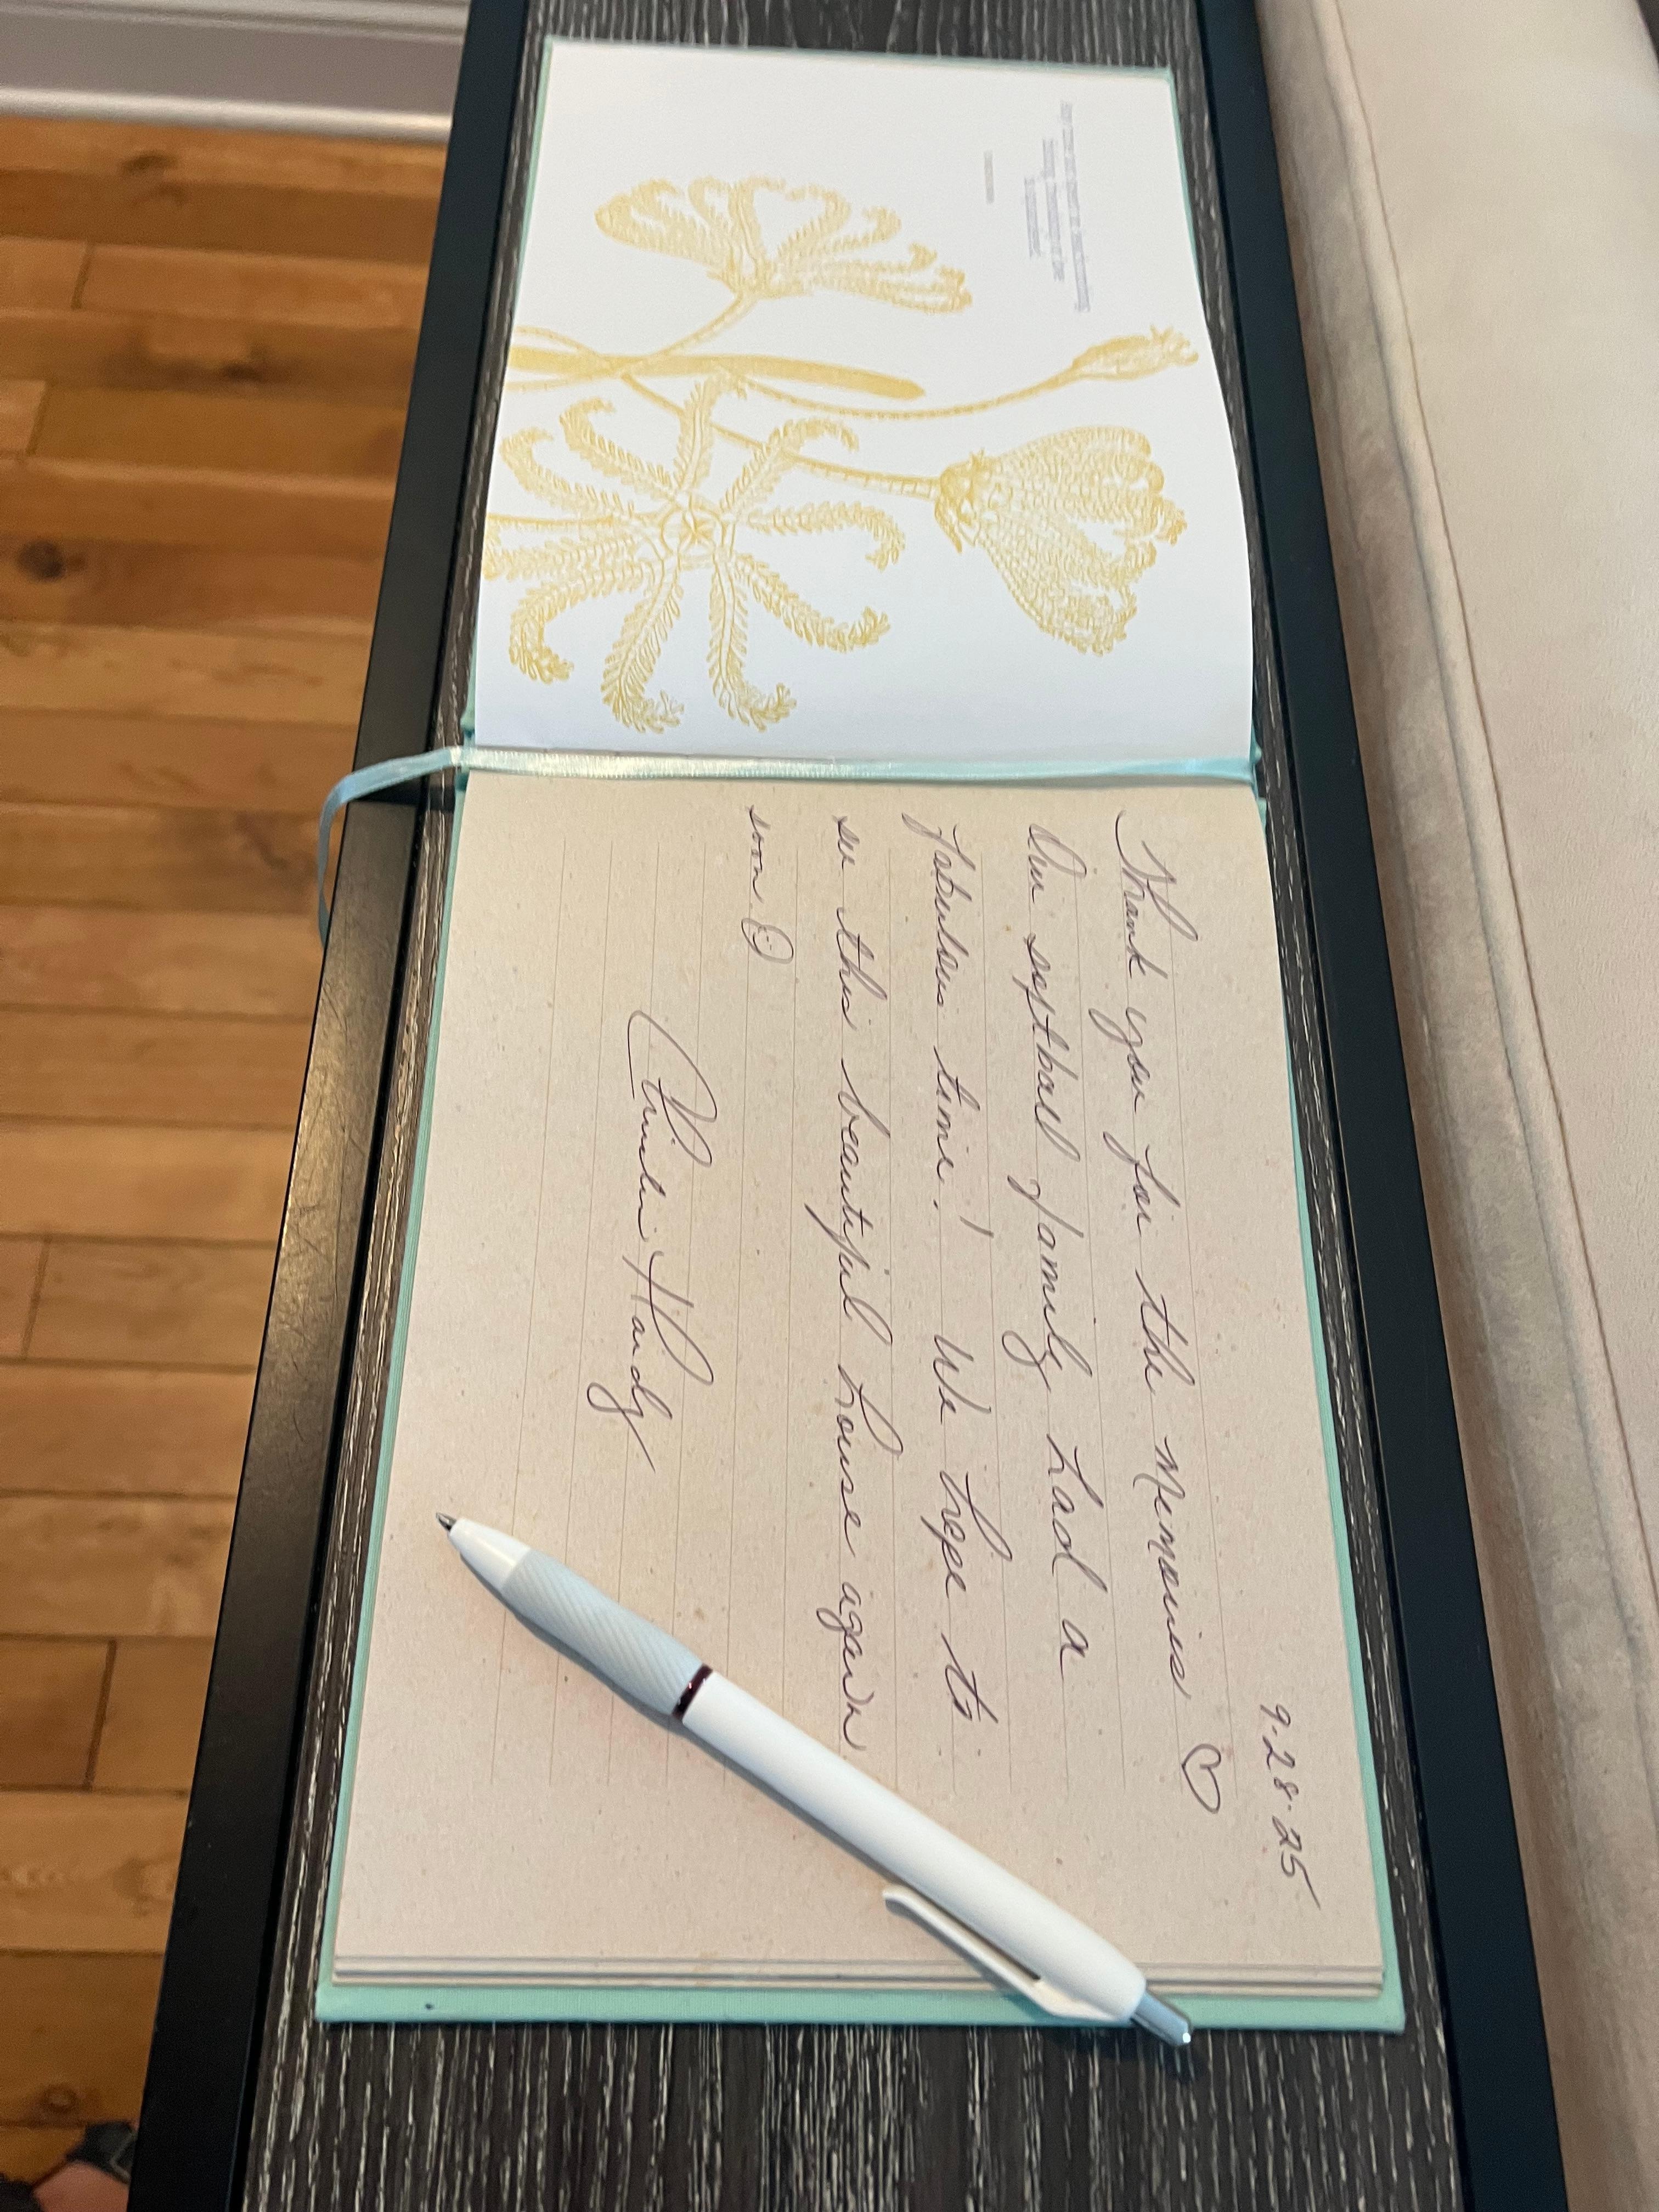 9·28·25
Thank you for the Memories ♡
Our softball family had a
fabulous time! We hope to
see this beautiful house again
soon. ☺
Handy